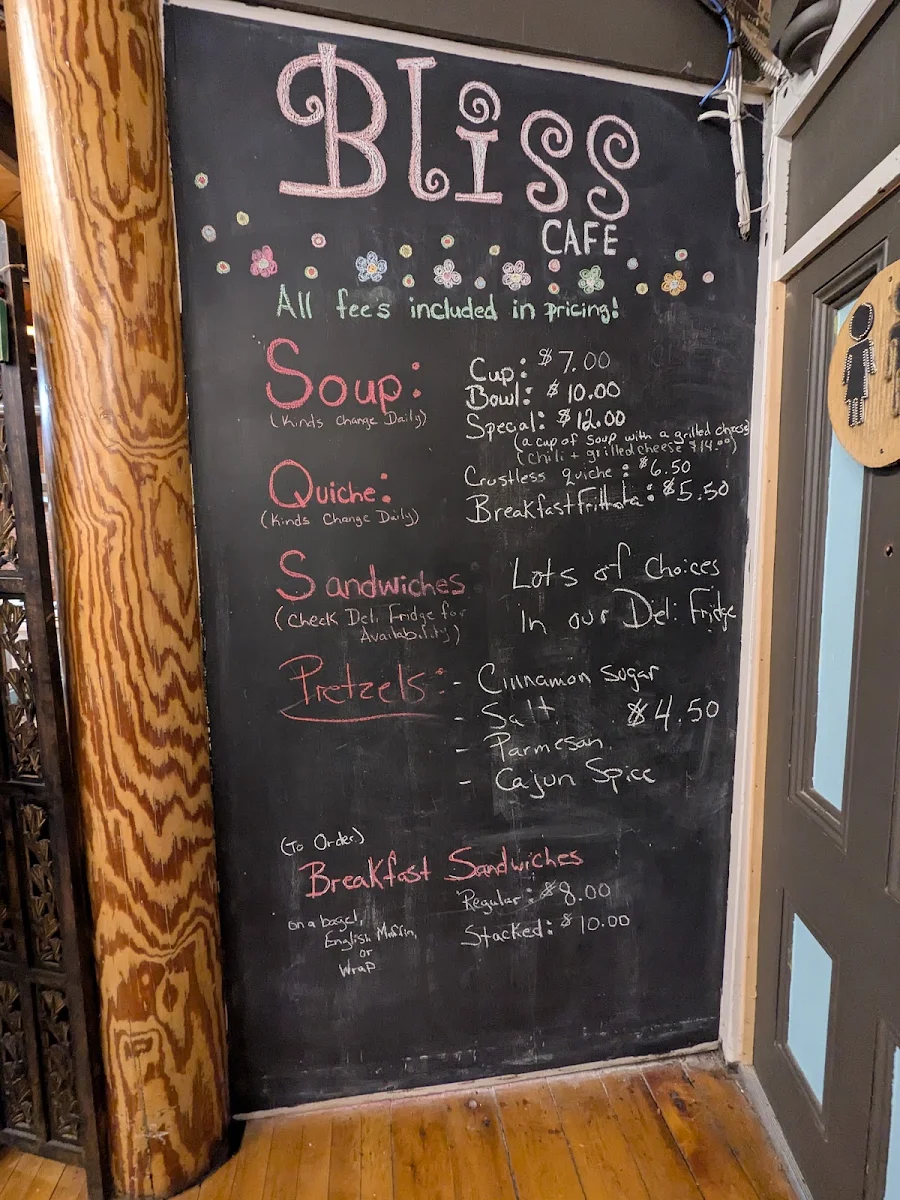 Bliss
CAFE
All fees included in pricing!
Soup:
(Kinds Change Daily)
Cup: $7.00
Bowl: $10.00
Special: $12.00
(a cup of soup with a grilled cheese)
(chili + grilled cheese $14.00)
Quiche:
(Kinds Change Daily)
Crustless quiche: $6.50
Breakfast Frittata: $5.50
Sandwiches
(Check Deli Fridge for
Availability)
Lots of Choices
In our Deli Fridge
Pretzels:
- Cinnamon Sugar
- Salt $4.50
- Parmesan
- Cajun Spice
(To Order)
Breakfast Sandwiches
on a bagel,
English Muffin,
or
Wrap
Regular: $8.00
Stacked: $10.00